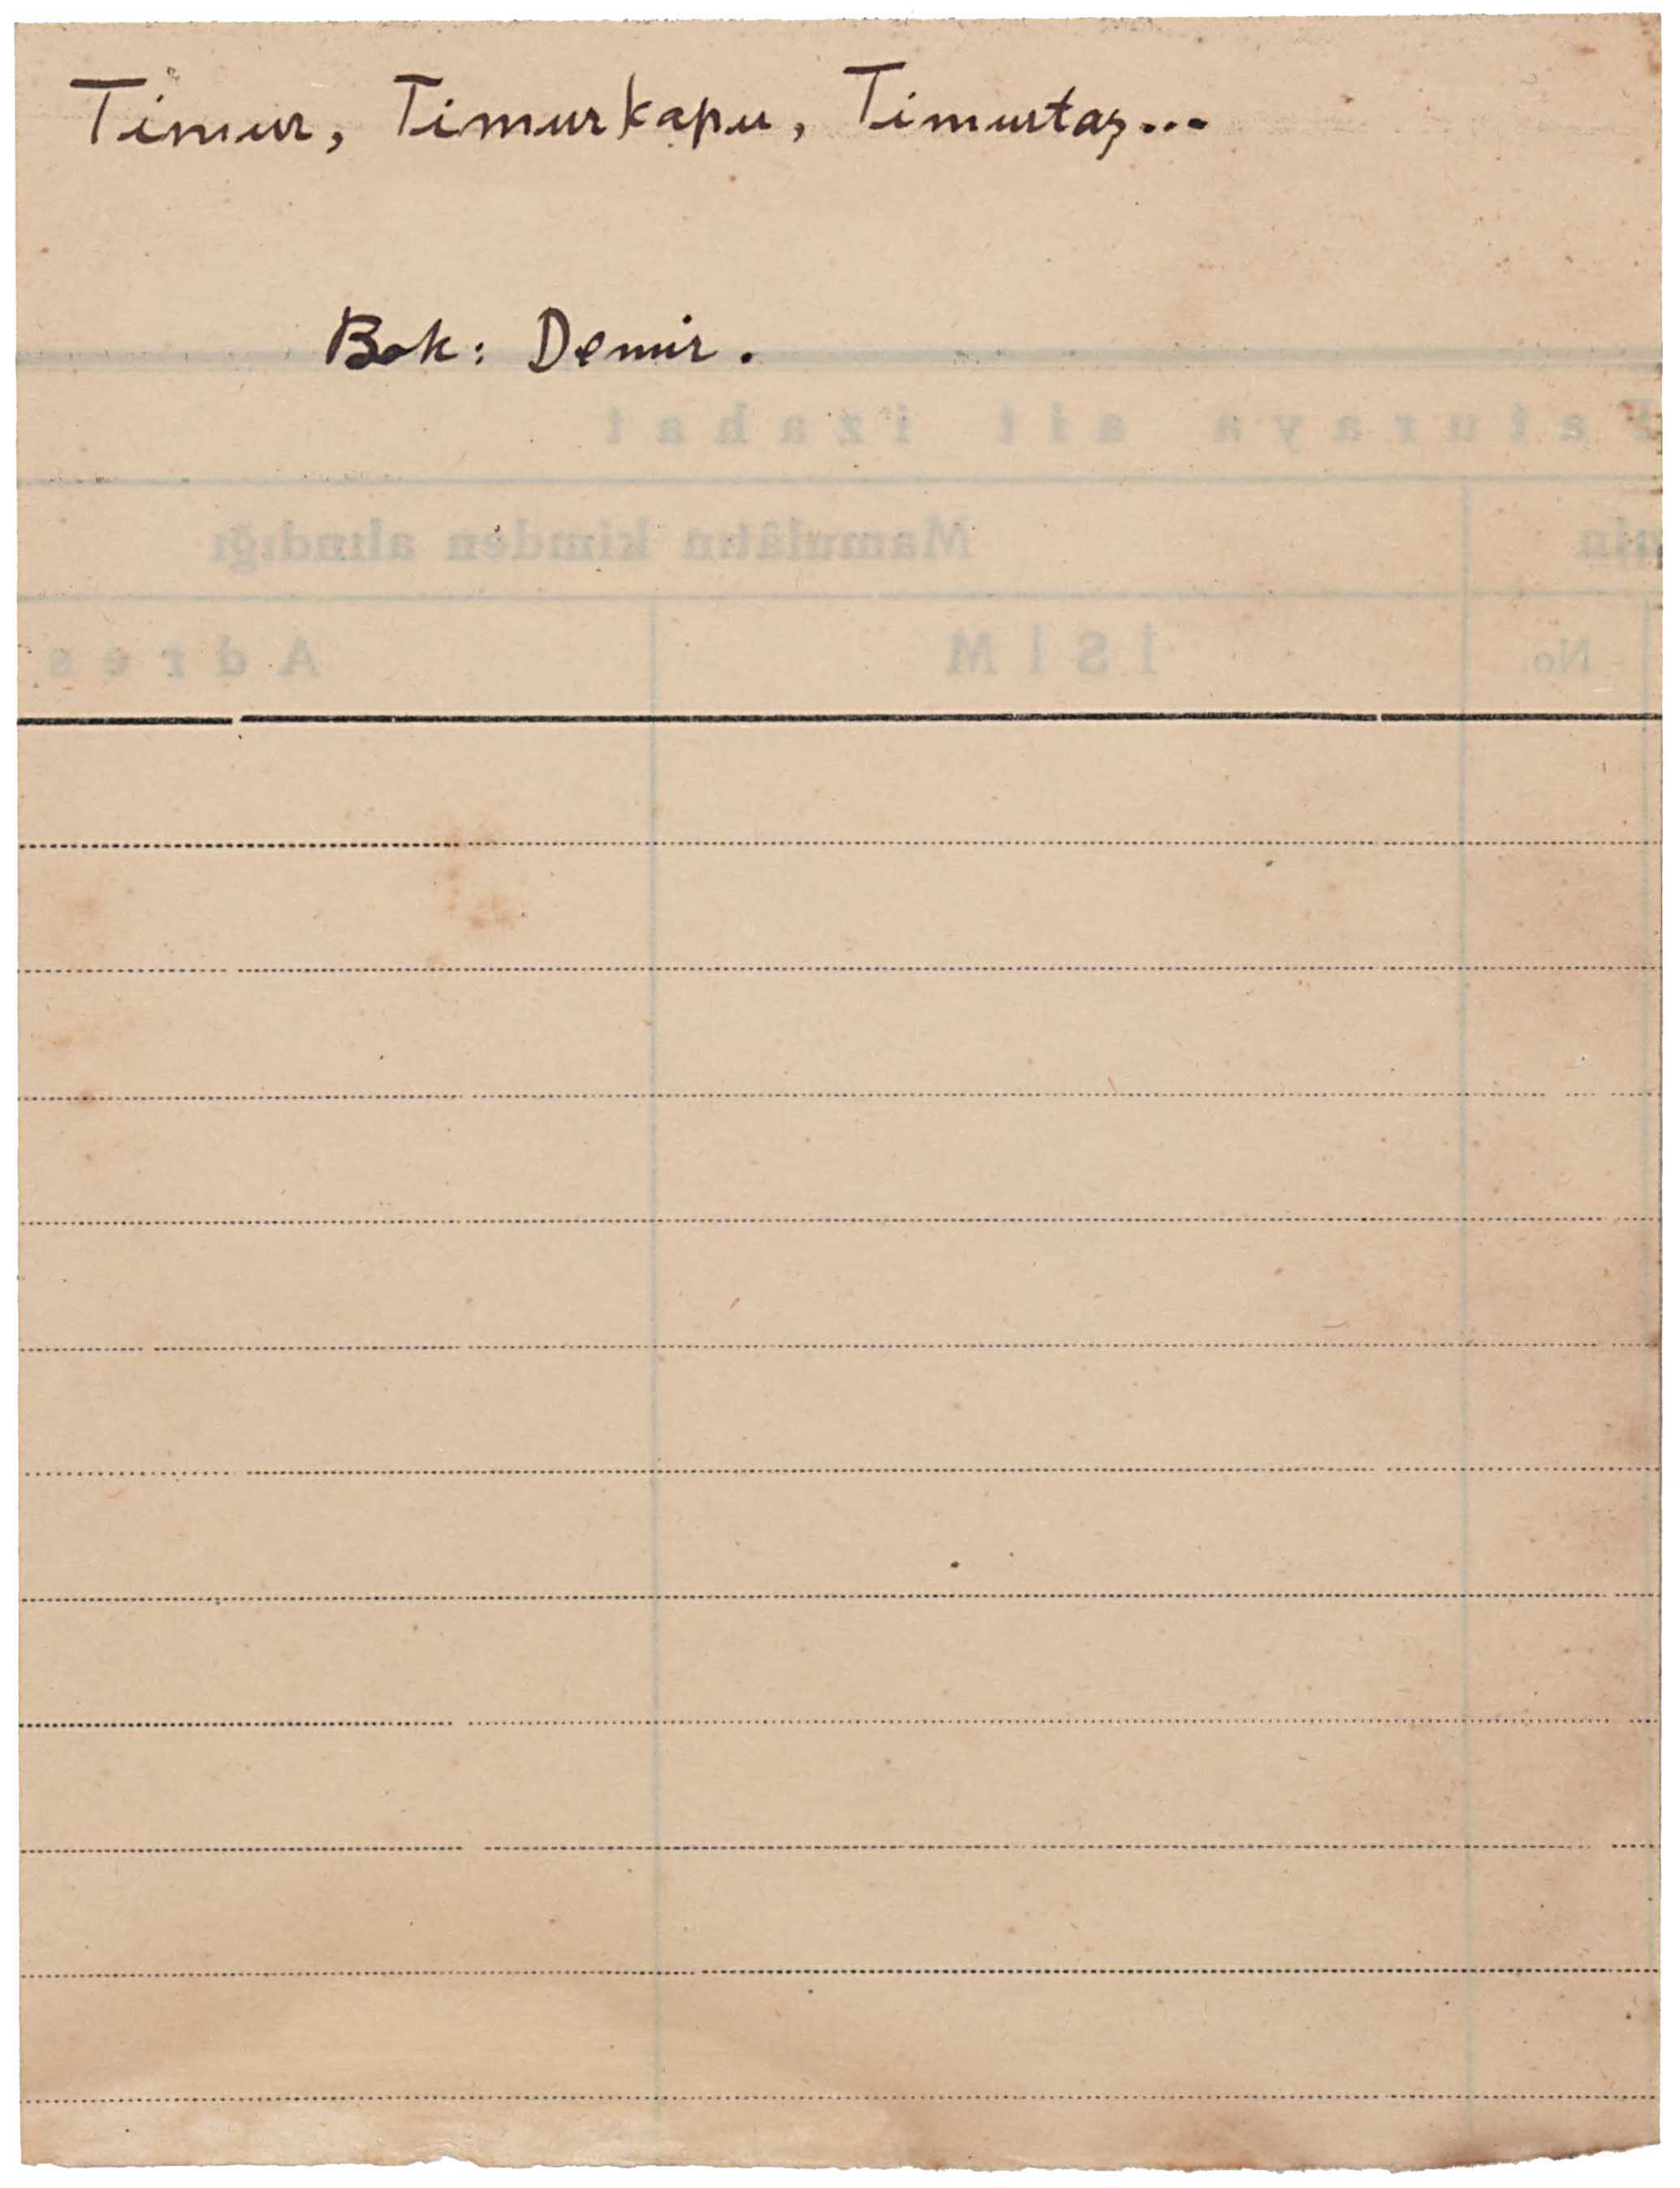 Timur, Timurkapu, Timurtaş...
Bak: Demir.
Faturaya ait izahat
Mamulâtın kimden alındığı
No. İSİM Adres